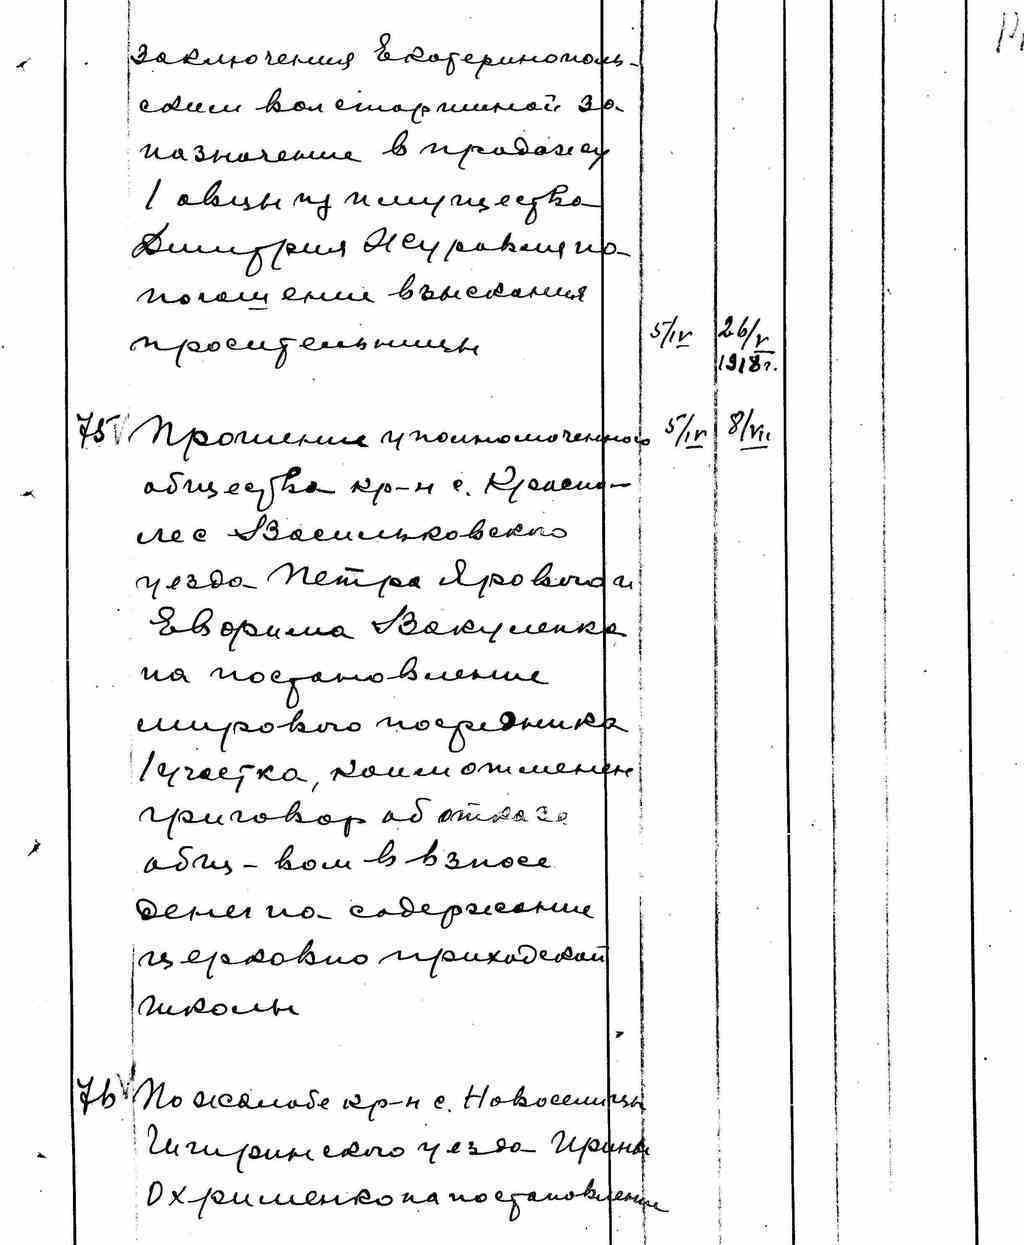 заключения Екатеринополь-
ским вол старшиной за
назначение в продажу
1 овцы из имущества
Дмитрия Журавля на
погашение взыскания
просительницы 5/IV 26/V
1918 г.
75 Прошение уполномоченного 5/IV 8/VII
общества кр-н с. Красно-
лес Васильковского
уезда Петра Ярового и
Евфрима Вакуленка
на постановление
мирового посредника
1 участка, коим отменен
приговор об отказе
общ-вом в взносе
денег на содержание
церковно приходской
школы
76 По жалобе кр-н с. Новоселицы
Чигиринского уезда Ирины
Охрименко на постановление